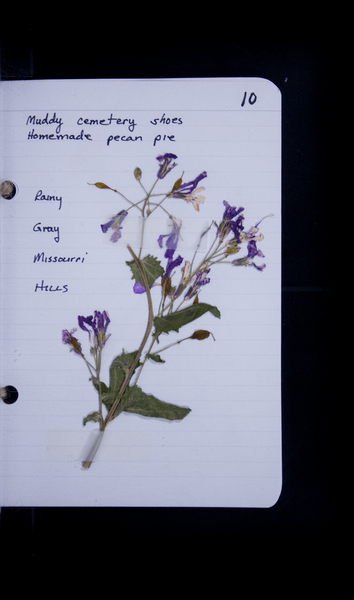 10
Muddy cemetery shoes
Homemade pecan pie
Rainy
Gray
Missouri
Hills